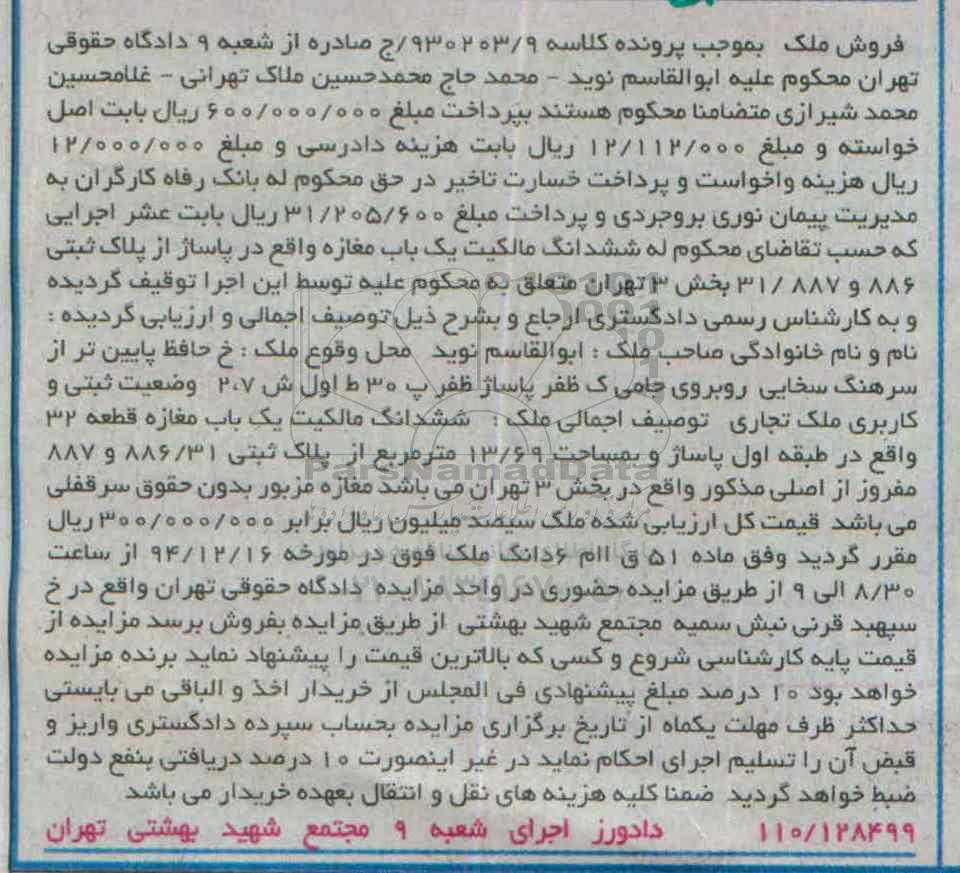 فروش ملک بموجب پرونده کلاسه ۹۳۰۲۰۳/۹/ج صادره از شعبه ۹ دادگاه حقوقی
تهران محکوم علیه ابوالقاسم نوید - محمد حاج محمدحسین ملاک تهرانی - غلامحسین
محمد شیرازی متضامنا محکوم هستند بپرداخت مبلغ ۶۰۰/۰۰۰/۰۰۰ ریال بابت اصل
خواسته و مبلغ ۱۲/۱۱۲/۰۰۰ ریال بابت هزینه دادرسی و مبلغ ۱۲/۰۰۰/۰۰۰
ریال هزینه واخواست و پرداخت خسارت تاخیر در حق محکوم له بانک رفاه کارگران به
مدیریت پیمان نوری بروجردی و پرداخت مبلغ ۳۱/۲۰۵/۶۰۰ ریال بابت عشر اجرایی
که حسب تقاضای محکوم له ششدانگ مالکیت یک باب مغازه واقع در پاساژ از پلاک ثبتی
۸۸۶ و ۸۸۷ /۳۱ بخش ۳ تهران متعلق به محکوم علیه توسط این اجرا توقیف گردیده
و به کارشناس رسمی دادگستری ارجاع و بشرح ذیل توصیف اجمالی و ارزیابی گردیده :
نام و نام خانوادگی صاحب ملک : ابوالقاسم نوید محل وقوع ملک : خ حافظ پایین تر از
سرهنگ سخایی روبروی جامی ک ظفر پاساژ ظفر پ ۳۰ ط اول ش ۲،۷ وضعیت ثبتی و
کاربری ملک تجاری توصیف اجمالی ملک : ششدانگ مالکیت یک باب مغازه قطعه ۳۲
واقع در طبقه اول پاساژ و بمساحت ۱۳/۶۹ مترمربع از پلاک ثبتی ۸۸۶/۳۱ و ۸۸۷
ParsNamadData
مفروز از اصلی مذکور واقع در بخش ۳ تهران می باشد مغازه مزبور بدون حقوق سرقفلی
می باشد قیمت کل ارزیابی شده ملک سیصد میلیون ریال برابر ۳۰۰/۰۰۰/۰۰۰ ریال
مقرر گردید وفق ماده ۵۱ ق اام ۶دانگ ملک فوق در مورخه ۹۴/۱۲/۱۶ از ساعت
۸/۳۰ الی ۹ از طریق مزایده حضوری در واحد مزایده دادگاه حقوقی تهران واقع در خ
سپهبد قرنی نبش سمیه مجتمع شهید بهشتی از طریق مزایده بفروش برسد مزایده از
قیمت پایه کارشناسی شروع و کسی که بالاترین قیمت را پیشنهاد نماید برنده مزایده
خواهد بود ۱۰ درصد مبلغ پیشنهادی فی المجلس از خریدار اخذ و الباقی می بایستی
حداکثر ظرف مهلت یکماه از تاریخ برگزاری مزایده بحساب سپرده دادگستری واریز و
قبض آن را تسلیم اجرای احکام نماید در غیر اینصورت ۱۰ درصد دریافتی بنفع دولت
ضبط خواهد گردید ضمنا کلیه هزینه های نقل و انتقال بعهده خریدار می باشد
۱۱۰/۱۲۸۴۹۹ دادورز اجرای شعبه ۹ مجتمع شهید بهشتی تهران